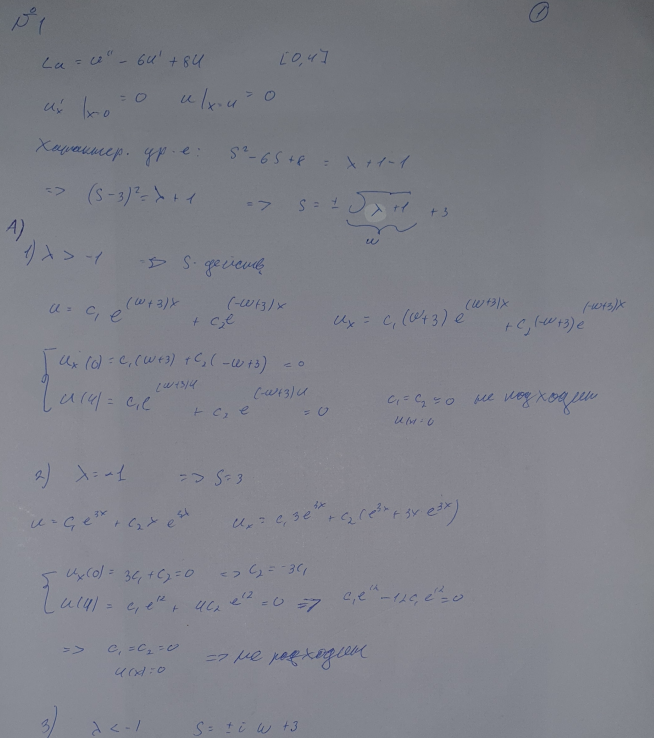 №1 ①
Lu = u'' - 6u' + 8u [0,4]
u'ₓ |ₓ₌₀ = 0 u|ₓ₌₄ = 0
Характер. ур-е: S² - 6S + 8 = λ + 1 - 1
=> (S-3)² = λ + 1 => S = ± √(λ+1) + 3
w
А)
1) λ > -1 => S - действ
u = c₁ e^((w+3)x) + c₂ e^((-w+3)x) uₓ = c₁(w+3) e^((w+3)x) + c₂(-w+3) e^((-w+3)x)
{ uₓ(0) = c₁(w+3) + c₂(-w+3) = 0
u(4) = c₁ e^((w+3)4) + c₂ e^((-w+3)4) = 0 c₁ = c₂ = 0 не подходит
u(x)=0
2) λ = -1 => S = 3
u = c₁ e^(3x) + c₂ x e^(3x) uₓ = c₁ 3e^(3x) + c₂ (e^(3x) + 3x e^(3x))
{ uₓ(0) = 3c₁ + c₂ = 0 => c₂ = -3c₁
u(4) = c₁ e^(12) + 4c₂ e^(12) = 0 => c₁ e^(12) - 12c₁ e^(12) = 0
=> c₁ = c₂ = 0 => не подходит
u(x)=0
3) λ < -1 S = ± i w + 3